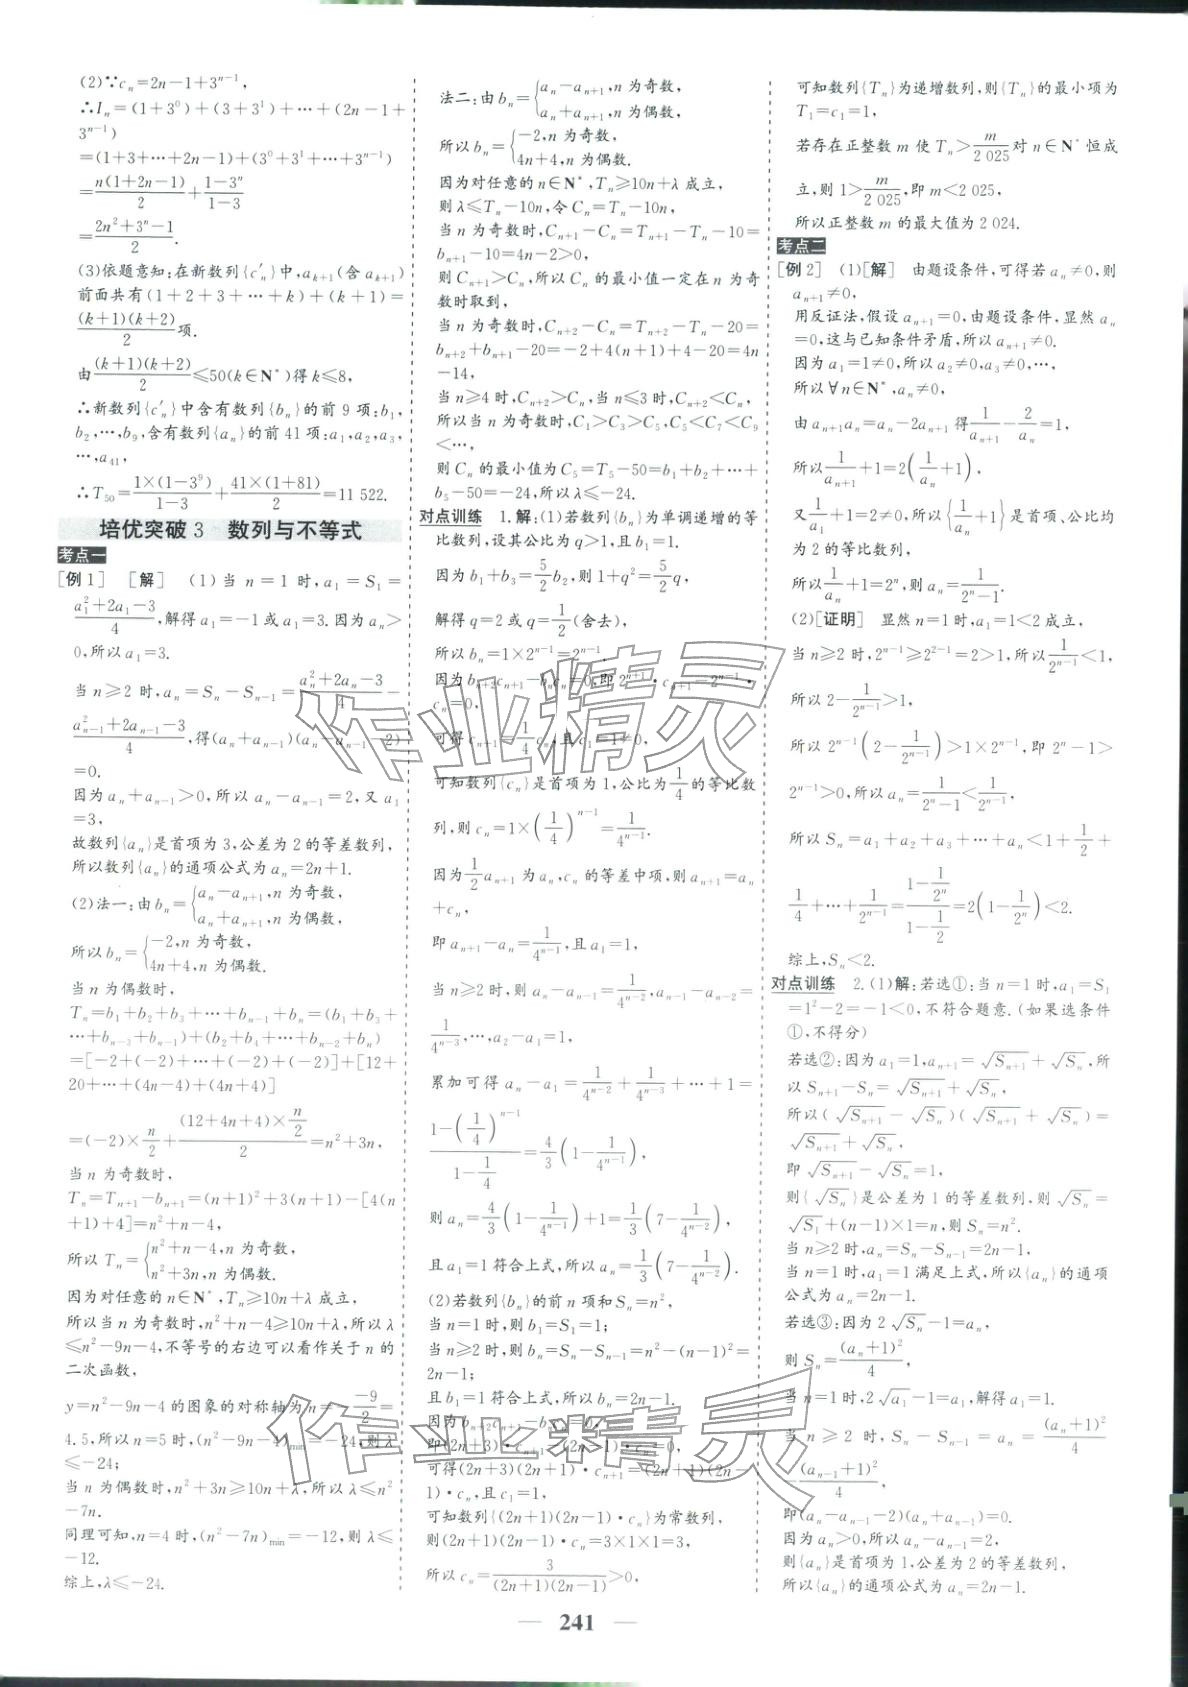 (2)∵cₙ=2n-1+3ⁿ⁻¹,
∴Iₙ=(1+3⁰)+(3+3¹)+…+(2n-1+
3ⁿ⁻¹)
=(1+3+…+2n-1)+(3⁰+3¹+…+3ⁿ⁻¹)
=n(1+2n-1)/2+(1-3ⁿ)/(1-3)
=(2n²+3ⁿ-1)/2.
(3)依题意知:在新数列{c′ₙ}中,aₖ₊₁(含aₖ₊₁)
前面共有(1+2+3+…+k)+(k+1)=
(k+1)(k+2)/2项.
由(k+1)(k+2)/2≤50(k∈N*)得k≤8,
∴新数列{c′ₙ}中含有数列{bₙ}的前9项:b₁,
b₂,…,b₉,含有数列{aₙ}的前41项:a₁,a₂,a₃,
…,a₄₁,
∴T₅₀=1×(1-3⁹)/(1-3)+41×(1+81)/2=11 522.
培优突破3 数列与不等式
考点一
[例1] [解] (1)当n=1时,a₁=S₁=
(a₁²+2a₁-3)/4,解得a₁=-1或a₁=3.因为aₙ>
0,所以a₁=3.
当n≥2时,aₙ=Sₙ-Sₙ₋₁=(aₙ²+2aₙ-3)/4-
(aₙ₋₁²+2aₙ₋₁-3)/4,得(aₙ+aₙ₋₁)(aₙ-aₙ₋₁-2)
=0.
因为aₙ+aₙ₋₁>0,所以aₙ-aₙ₋₁=2,又a₁
=3,
故数列{aₙ}是首项为3,公差为2的等差数列,
所以数列{aₙ}的通项公式为aₙ=2n+1.
(2)法一:由bₙ={aₙ-aₙ₊₁,n为奇数,
aₙ+aₙ₊₁,n为偶数.
所以bₙ={-2,n为奇数,
4n+4,n为偶数.
当n为偶数时,
Tₙ=b₁+b₂+b₃+…+bₙ₋₁+bₙ=(b₁+b₃+
…+bₙ₋₃+bₙ₋₁)+(b₂+b₄+…+bₙ₋₂+bₙ)
=[-2+(-2)+…+(-2)+(-2)]+[12+
20+…+(4n-4)+(4n+4)]
=(-2)×n/2+(12+4n+4)×(n/2)/2=n²+3n,
当n为奇数时,
Tₙ=Tₙ₊₁-bₙ₊₁=(n+1)²+3(n+1)-[4(n
+1)+4]=n²+n-4,
所以Tₙ={n²+n-4,n为奇数,
n²+3n,n为偶数.
因为对任意的n∈N*,Tₙ≥10n+λ成立,
所以当n为奇数时,n²+n-4≥10n+λ,所以λ
≤n²-9n-4,不等号的右边可以看作关于n的
二次函数,
y=n²-9n-4的图象的对称轴为n=-(-9)/2=
4.5,所以n=5时,(n²-9n-4)min=-24,则λ
≤-24;
当n为偶数时,n²+3n≥10n+λ,所以λ≤n²
-7n.
同理可知,n=4时,(n²-7n)min=-12,则λ≤
-12.
综上,λ≤-24.
法二:由bₙ={aₙ-aₙ₊₁,n为奇数,
aₙ+aₙ₊₁,n为偶数,
所以bₙ={-2,n为奇数,
4n+4,n为偶数.
因为对任意的n∈N*,Tₙ≥10n+λ成立,
则λ≤Tₙ-10n,令Cₙ=Tₙ-10n,
当n为奇数时,Cₙ₊₁-Cₙ=Tₙ₊₁-Tₙ-10=
bₙ₊₁-10=4n-2>0,
则Cₙ₊₁>Cₙ,所以Cₙ的最小值一定在n为奇
数时取到,
当n为奇数时,Cₙ₊₂-Cₙ=Tₙ₊₂-Tₙ-20=
bₙ₊₂+bₙ₊₁-20=-2+4(n+1)+4-20=4n
-14,
当n≥4时,Cₙ₊₂>Cₙ,当n≤3时,Cₙ₊₂<Cₙ,
所以当n为奇数时,C₁>C₃>C₅,C₅<C₇<C₉
<…,
则Cₙ的最小值为C₅=T₅-50=b₁+b₂+…+
b₅-50=-24,所以λ≤-24.
对点训练 1.解:(1)若数列{bₙ}为单调递增的等
比数列,设其公比为q>1,且b₁=1.
因为b₁+b₃=5/2b₂,则1+q²=5/2q,
解得q=2或q=1/2(舍去),
所以bₙ=1×2ⁿ⁻¹=2ⁿ⁻¹.
因为bₙ₊₂cₙ₊₁-bₙcₙ=0,即2ⁿ⁺¹·cₙ₊₁-2ⁿ⁻¹·
cₙ=0,
可得cₙ₊₁=1/4cₙ,且c₁=1,
可知数列{cₙ}是首项为1,公比为1/4的等比数
列,则cₙ=1×(1/4)ⁿ⁻¹=1/4ⁿ⁻¹.
因为1/2aₙ₊₁为aₙ,cₙ的等差中项,则aₙ₊₁=aₙ
+cₙ,
即aₙ₊₁-aₙ=1/4ⁿ⁻¹,且a₁=1,
当n≥2时,则aₙ-aₙ₋₁=1/4ⁿ⁻²,aₙ₋₁-aₙ₋₂=
1/4ⁿ⁻³,…,a₂-a₁=1,
累加可得aₙ-a₁=1/4ⁿ⁻²+1/4ⁿ⁻³+…+1=
(1-(1/4)ⁿ⁻¹)/(1-1/4)=4/3(1-1/4ⁿ⁻¹),
则aₙ=4/3(1-1/4ⁿ⁻¹)+1=1/3(7-1/4ⁿ⁻²),
且a₁=1符合上式,所以aₙ=1/3(7-1/4ⁿ⁻²).
(2)若数列{bₙ}的前n项和Sₙ=n²,
当n=1时,则b₁=S₁=1;
当n≥2时,则bₙ=Sₙ-Sₙ₋₁=n²-(n-1)²=
2n-1;
且b₁=1符合上式,所以bₙ=2n-1.
因为bₙ₊₂cₙ₊₁-bₙcₙ=0,
即(2n+3)·cₙ₊₁-(2n-1)·cₙ=0,
可得(2n+3)(2n+1)·cₙ₊₁=(2n+1)(2n-
1)·cₙ,且c₁=1,
可知数列{(2n+1)(2n-1)·cₙ}为常数列,
则(2n+1)(2n-1)·cₙ=3×1×1=3,
所以cₙ=3/((2n+1)(2n-1))>0,
可知数列{Tₙ}为递增数列,则{Tₙ}的最小项为
T₁=c₁=1,
若存在正整数m使Tₙ>m/2 025对n∈N*恒成
立,则1>m/2 025,即m<2 025,
所以正整数m的最大值为2 024.
考点二
[例2] (1)[解] 由题设条件,可得若aₙ≠0,则
aₙ₊₁≠0,
用反证法,假设aₙ₊₁=0,由题设条件,显然aₙ
=0,这与已知条件矛盾,所以aₙ₊₁≠0.
因为a₁=1≠0,所以a₂≠0,a₃≠0,…,
所以∀n∈N*,aₙ≠0,
由aₙ₊₁aₙ=aₙ-2aₙ₊₁得1/aₙ₊₁-2/aₙ=1,
所以1/aₙ₊₁+1=2(1/aₙ+1),
又1/a₁+1=2≠0,所以{1/aₙ+1}是首项、公比均
为2的等比数列,
所以1/aₙ+1=2ⁿ,则aₙ=1/(2ⁿ-1).
(2)[证明] 显然n=1时,a₁=1<2成立,
当n≥2时,2ⁿ⁻¹≥2²⁻¹=2>1,所以1/2ⁿ⁻¹<1,
所以2-1/2ⁿ⁻¹>1,
所以2ⁿ⁻¹(2-1/2ⁿ⁻¹)>1×2ⁿ⁻¹,即2ⁿ-1>
2ⁿ⁻¹>0,所以aₙ=1/(2ⁿ-1)<1/2ⁿ⁻¹,
所以Sₙ=a₁+a₂+a₃+…+aₙ<1+1/2+
1/4+…+1/2ⁿ⁻¹=(1-1/2ⁿ)/(1-1/2)=2(1-1/2ⁿ)<2.
综上,Sₙ<2.
对点训练 2.(1)解:若选①:当n=1时,a₁=S₁
=1²-2=-1<0,不符合题意.(如果选条件
①,不得分)
若选②:因为a₁=1,aₙ₊₁=√Sₙ₊₁+√Sₙ,所
以Sₙ₊₁-Sₙ=√Sₙ₊₁+√Sₙ,
所以(√Sₙ₊₁-√Sₙ)(√Sₙ₊₁+√Sₙ)=
√Sₙ₊₁+√Sₙ,
即√Sₙ₊₁-√Sₙ=1,
则{√Sₙ}是公差为1的等差数列,则√Sₙ=
√S₁+(n-1)×1=n,则Sₙ=n².
当n≥2时,aₙ=Sₙ-Sₙ₋₁=2n-1;
当n=1时,a₁=1满足上式,所以{aₙ}的通项
公式为aₙ=2n-1.
若选③:因为2√Sₙ-1=aₙ,
则Sₙ=(aₙ+1)²/4,
当n=1时,2√a₁-1=a₁,解得a₁=1.
当n≥2时,Sₙ-Sₙ₋₁=aₙ=(aₙ+1)²/4-
(aₙ₋₁+1)²/4,
即(aₙ-aₙ₋₁-2)(aₙ+aₙ₋₁)=0,
因为aₙ>0,所以aₙ-aₙ₋₁=2,
则{aₙ}是首项为1,公差为2的等差数列,
所以{aₙ}的通项公式为aₙ=2n-1.
241
作业精灵
作业精灵